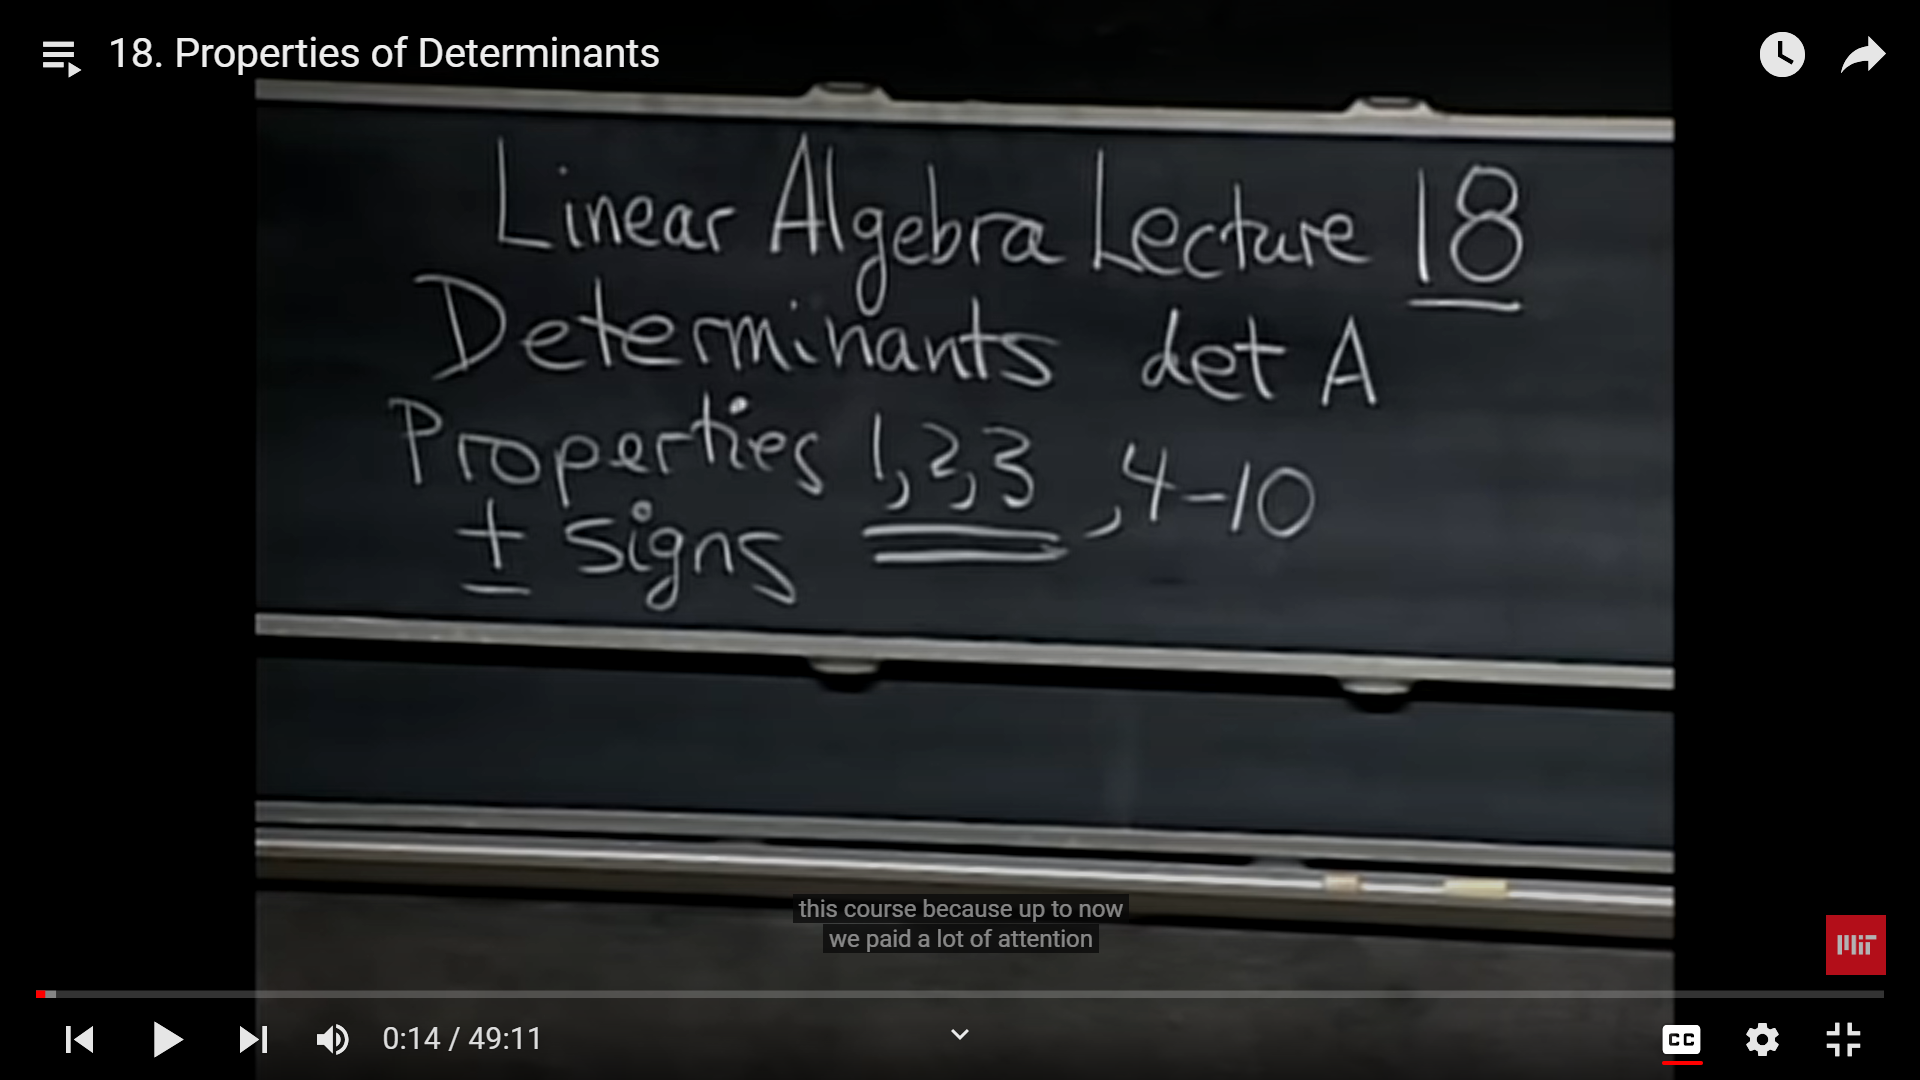 18. Properties of Determinants
Linear Algebra Lecture 18
Determinants det A
Properties 1,2,3,4-10
± signs
this course because up to now
we paid a lot of attention
MIT
0:14 / 49:11
CC